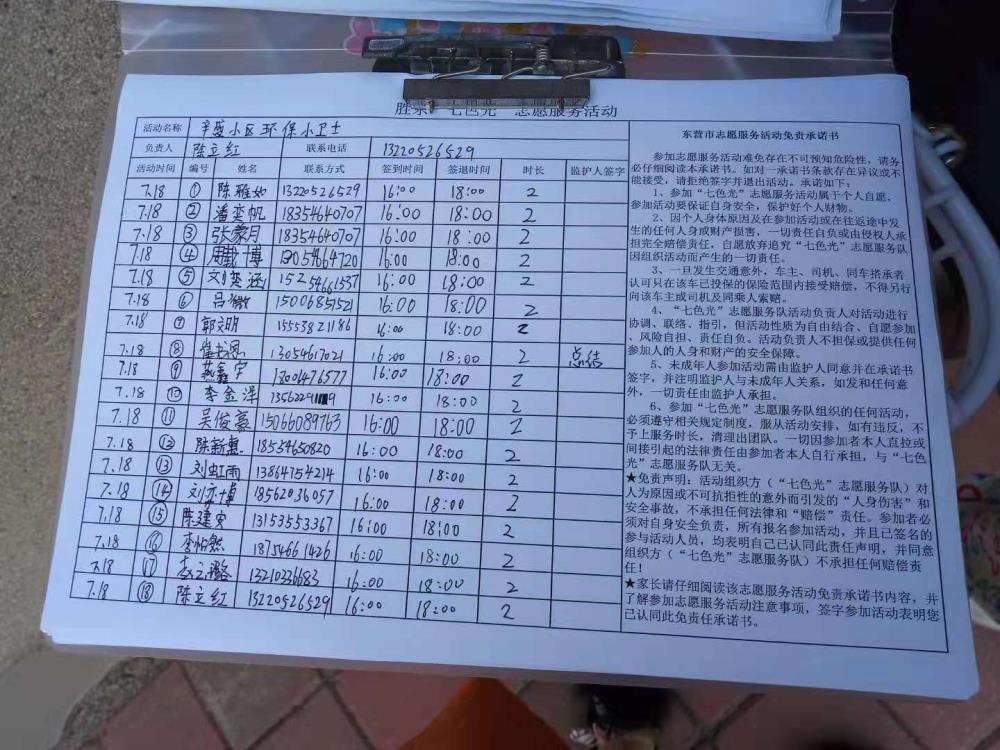 七色光 志愿服务活动
活动名称 辛盛小区环保小卫士
负责人 陈立红 联系电话 13220526529
活动时间 编号 姓名 联系方式 签到时间 签退时间 时长 监护人签字
7.18 ① 陈雅如 13220526529 16:00 18:00 2
7.18 ② 潘奕帆 18354640707 16:00 18:00 2
7.18 ③ 张蒙月 18354640707 16:00 18:00 2
7.18 ④ 博 13054664720 16:00 18:00 2
7.18 ⑤ 刘楚涵 16:00 18:00 2
7.18 ⑥ 吕微 15006851521 16:00 18:00 2
7.18 ⑦ 郭文明 15553821186 16:00 18:00 2
7.18 ⑧ 崔书恩 13054617021 16:00 18:00 2 总结
7.18 ⑨ 燕鑫宇 16:00 18:00 2
7.18 ⑩ 李金泽 16:00 18:00 2
7.18 ⑪ 吴俊豪 15066089763 16:00 18:00 2
7.18 ⑫ 陈新惠 18554650820 16:00 18:00 2
7.18 ⑬ 刘虹雨 13864754214 16:00 18:00 2
7.18 ⑭ 刘亦博 18562036057 16:00 18:00 2
7.18 ⑮ 陈建安 13153553367 16:00 18:00 2
7.18 ⑯ 李怡然 18754661426 16:00 18:00 2
7.18 ⑰ 13210336683 16:00 18:00 2
7.18 ⑱ 陈立红 13220526529 16:00 18:00 2
东营市志愿服务活动免责承诺书
参加志愿服务活动难免存在不可预知危险性，请务
必仔细阅读本承诺书。如对一承诺书条款存在异议或不
能接受，请拒绝签字并退出活动。承诺如下：
1、参加“七色光”志愿服务活动属于个人自愿，
参加活动要保证自身安全，保护好个人财物。
2、因个人身体原因及在参加活动或在往返途中发
生的任何人身或财产损害，一切责任自负或由侵权人承
担完全赔偿责任，自愿放弃追究“七色光”志愿服务队
因组织活动而产生的一切责任。
3、一旦发生交通意外，车主、司机、同车搭承者
认可只在该车已投保的保险范围内接受赔偿，不得另行
向该车主或司机及同乘人索赔。
4、“七色光”志愿服务队活动负责人对活动进行
协调、联络、指引，但活动性质为自由结合、自愿参加
、风险自担、责任自负。活动负责人不担保或提供任何
参加人的人身和财产的安全保障。
5、未成年人参加活动需由监护人同意并在承诺书
签字，并注明监护人与未成年人关系，如发和任何意
外，一切责任由监护人承担。
6、参加“七色光”志愿服务队组织的任何活动，
必须遵守相关规定制度，服从活动安排，如有违反，不
予上服务时长，清理出团队。一切因参加者本人直拉或
间接引起的法律责任由参加者本人自行承担，与“七色
光”志愿服务队无关。
★免责声明：活动组织方（“七色光”志愿服务队）对
人为原因或不可抗拒性的意外而引发的“人身伤害”和
安全事故，不承担任何法律和“赔偿”责任。参加者必
须对自身安全负责，所有报名参加活动，并且已签名的
参与活动人员，均表明自己已认同此责任声明，并同意
组织方（“七色光”志愿服务队）不承担任何赔偿责
任！
★家长请仔细阅读该志愿服务活动免责承诺书内容，并
了解参加志愿服务活动注意事项，签字参加活动表明您
已认同此免责任承诺书。